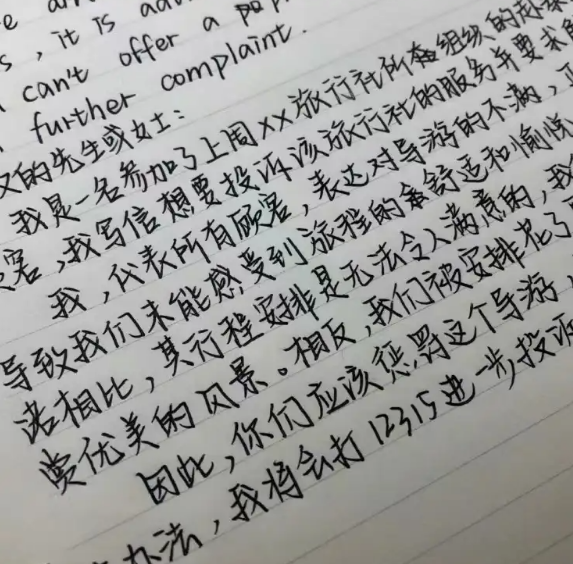 s, it is
can't offer a
further complaint.
的先生或女士：
我是一名参加了上周xx旅行社所组织的
客，我写信想要投诉该旅行社的服务并要求
我，代表所有顾客，表达对导游的不满，
导致我们未能感受到旅程的舒适和愉悦
诺相比，其行程安排是无法令人满意的，我
赏优美的风景。相反，我们被安排花了
因此，你们应该惩罚这个导游，
办法，我将会打12315进一步投诉